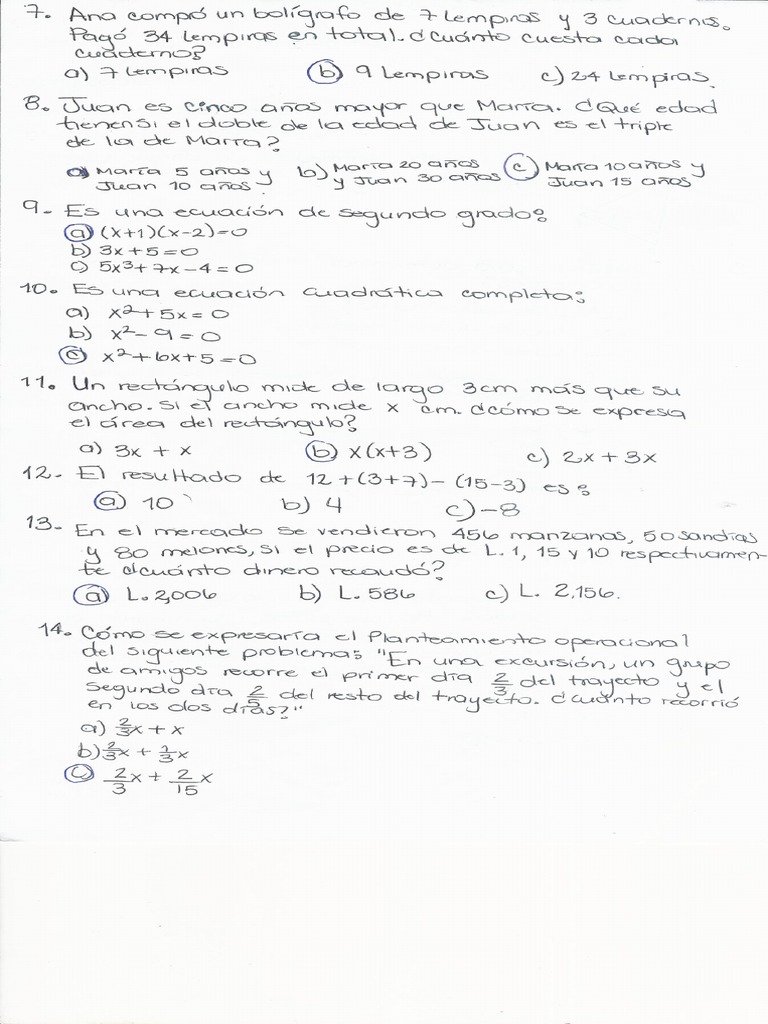 7. Ana compró un bolígrafo de 7 Lempiras y 3 cuadernos.
Pagó 34 Lempiras en total. ¿Cuánto cuesta cada
cuaderno?
a) 7 Lempiras b) 9 Lempiras c) 24 Lempiras.
8. Juan es cinco años mayor que María. ¿Qué edad
tienen si el doble de la edad de Juan es el triple
de la de María?
a) María 5 años y b) María 20 años c) María 10 años y
Juan 10 años. y Juan 30 años Juan 15 años
9. Es una ecuación de segundo grado:
a) (x+1)(x-2)=0
b) 3x+5=0
c) 5x³+7x-4=0
10. Es una ecuación cuadrática completa:
a) x²+5x=0
b) x²-9=0
c) x²+6x+5=0
11. Un rectángulo mide de largo 3cm más que su
ancho. Si el ancho mide x cm. ¿cómo se expresa
el área del rectángulo?
a) 3x + x b) x(x+3) c) 2x + 3x
12. El resultado de 12+(3+7)-(15-3) es:
a) 10 b) 4 c) -8
13. En el mercado se vendieron 456 manzanas, 50 sandías
y 80 melones, si el precio es de L.1, 15 y 10 respectivamen-
te ¿cuánto dinero recaudó?
a) L.2,006 b) L.586 c) L. 2,156.
14. Cómo se expresaría el Planteamiento operacional
del siguiente problema: "En una excursión, un grupo
de amigos recorre el primer día 2/3 del trayecto y el
segundo día 2/5 del resto del trayecto. ¿Cuánto recorrió
en los dos días?"
a) 2/3x + x
b) 2/3x + 1/3x
c) 2/3x + 2/15x